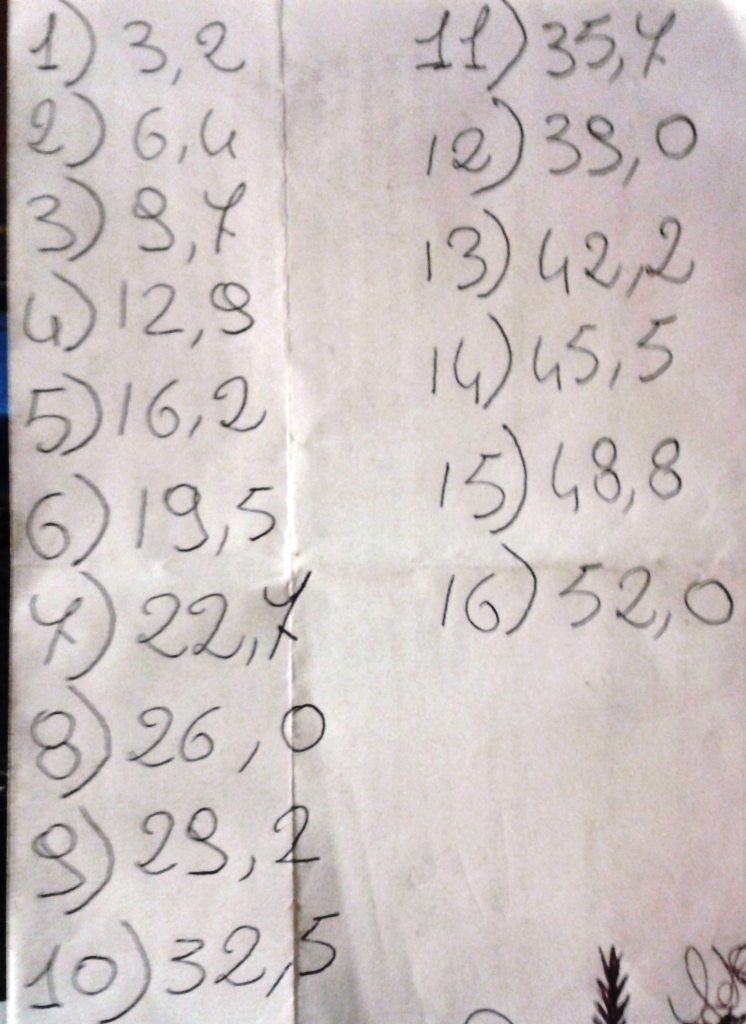 1) 3,2
2) 6,4
3) 9,7
4) 12,9
5) 16,2
6) 19,5
7) 22,7
8) 26,0
9) 29,2
10) 32,5
11) 35,7
12) 39,0
13) 42,2
14) 45,5
15) 48,8
16) 52,0